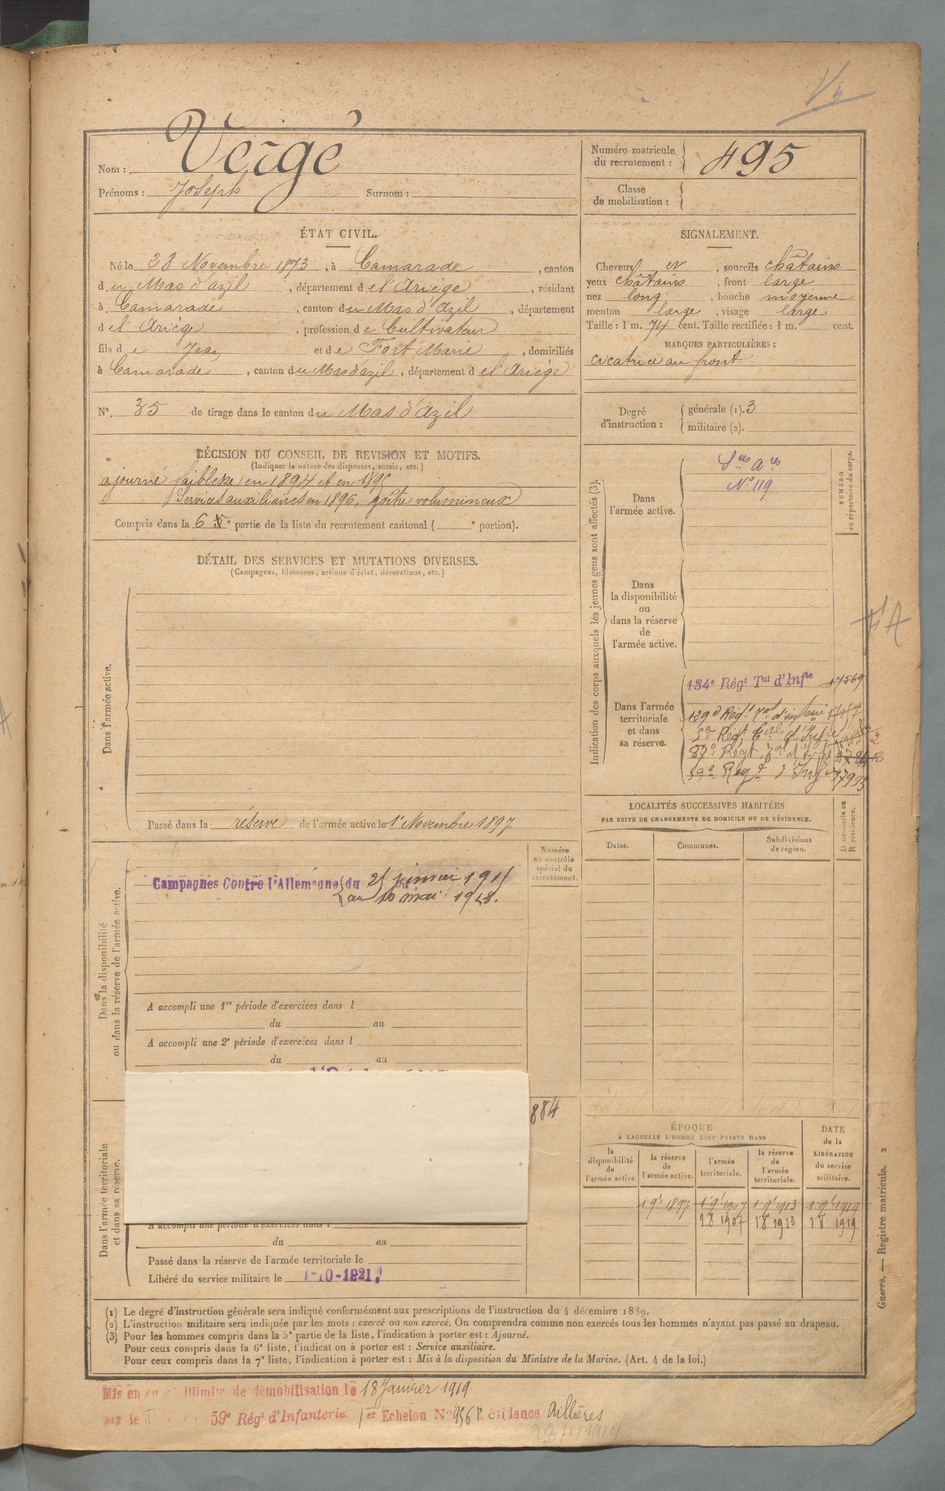 Nom : Vergé
Prénoms : Joseph Surnom :
Numéro matricule du recrutement : 495
Classe de mobilisation :
ÉTAT CIVIL.
Né le 23 Novembre 1873, à Camarade, canton
du Mas d'azil, département de l'Ariège, résidant
à Camarade, canton du Mas d'Azil, département
de l'Ariège, profession de Cultivateur
fils de Jean et de Fort Marie, domiciliés
à Camarade, canton du Mas d'azil, département de l'Ariège
N° 35 de tirage dans le canton du Mas d'Azil
SIGNALEMENT.
Cheveux et, sourcils châtains
yeux châtains, front large
nez long, bouche moyenne
menton large, visage large
Taille : 1 m. 74 cent. Taille rectifiée : 1 m. cent.
MARQUES PARTICULIÈRES :
cicatrice au front
Degré d'instruction : générale (1). 3
militaire (2).
DÉCISION DU CONSEIL DE REVISION ET MOTIFS.
(Indiquer la nature des dispenses, sursis, etc.)
ajourné faiblesse en 1894 et en 1895
Services auxiliaires en 1896, goître volumineux
Compris dans la 6e partie de la liste du recrutement cantonal ( e portion).
DÉTAIL DES SERVICES ET MUTATIONS DIVERSES.
(Campagnes, blessures, actions d'éclat, décorations, etc.)
Dans l'armée active.
Passé dans la réserve de l'armée active le 1er Novembre 1897
Indication des corps auxquels les jeunes gens sont affectés (3).
NUMÉRO au répertoire du corps.
Dans l'armée active.
Ses Ares
N° 119
Dans la disponibilité ou dans la réserve de l'armée active.
Dans l'armée territoriale et dans sa réserve.
134e Régt Tal d'Infie
LOCALITÉS SUCCESSIVES HABITÉES
PAR SUITE DE CHANGEMENTS DE DOMICILE OU DE RÉSIDENCE.
Dates. Communes. Subdivisions de région. D domicile ou R résidence.
Dans la disponibilité ou dans la réserve de l'armée active.
Numéro au contrôle spécial du recrutement.
Campagnes Contre l'Allemagne du 25 janvier 1915
au 10 mai 1918.
A accompli une 1re période d'exercices dans l
du au
A accompli une 2e période d'exercices dans l
du au
884
Dans l'armée territoriale et dans sa réserve.
A accompli une période d'exercices dans l
du au
Passé dans la réserve de l'armée territoriale le
Libéré du service militaire le 1-10-1921
ÉPOQUE
À LAQUELLE L'HOMME DOIT PASSER DANS
la disponibilité de l'armée active. la réserve de l'armée active. l'armée territoriale. la réserve de l'armée territoriale. DATE de la LIBÉRATION du service militaire.
1 9bre 1897 1 9bre 1907 1 9bre 1913 1 9bre 1919
1 8 1907 1 8 1913 1 8 1919
Guerre. — Registre matricule. 2
(1) Le degré d'instruction générale sera indiqué conformément aux prescriptions de l'instruction du 4 décembre 1889.
(2) L'instruction militaire sera indiquée par les mots : exercé ou non exercé. On comprendra comme non exercés tous les hommes n'ayant pas passé au drapeau.
(3) Pour les hommes compris dans la 5e partie de la liste, l'indication à porter est : Ajourné.
Pour ceux compris dans la 6e liste, l'indication à porter est : Service auxiliaire.
Pour ceux compris dans la 7e liste, l'indication à porter est : Mis à la disposition du Ministre de la Marine. (Art. 4 de la loi.)
Mis en illimité de démobilisation le 18 Janvier 1919
59e Régt d'Infanterie 1er Echelon N° 956 Résidence Aillères